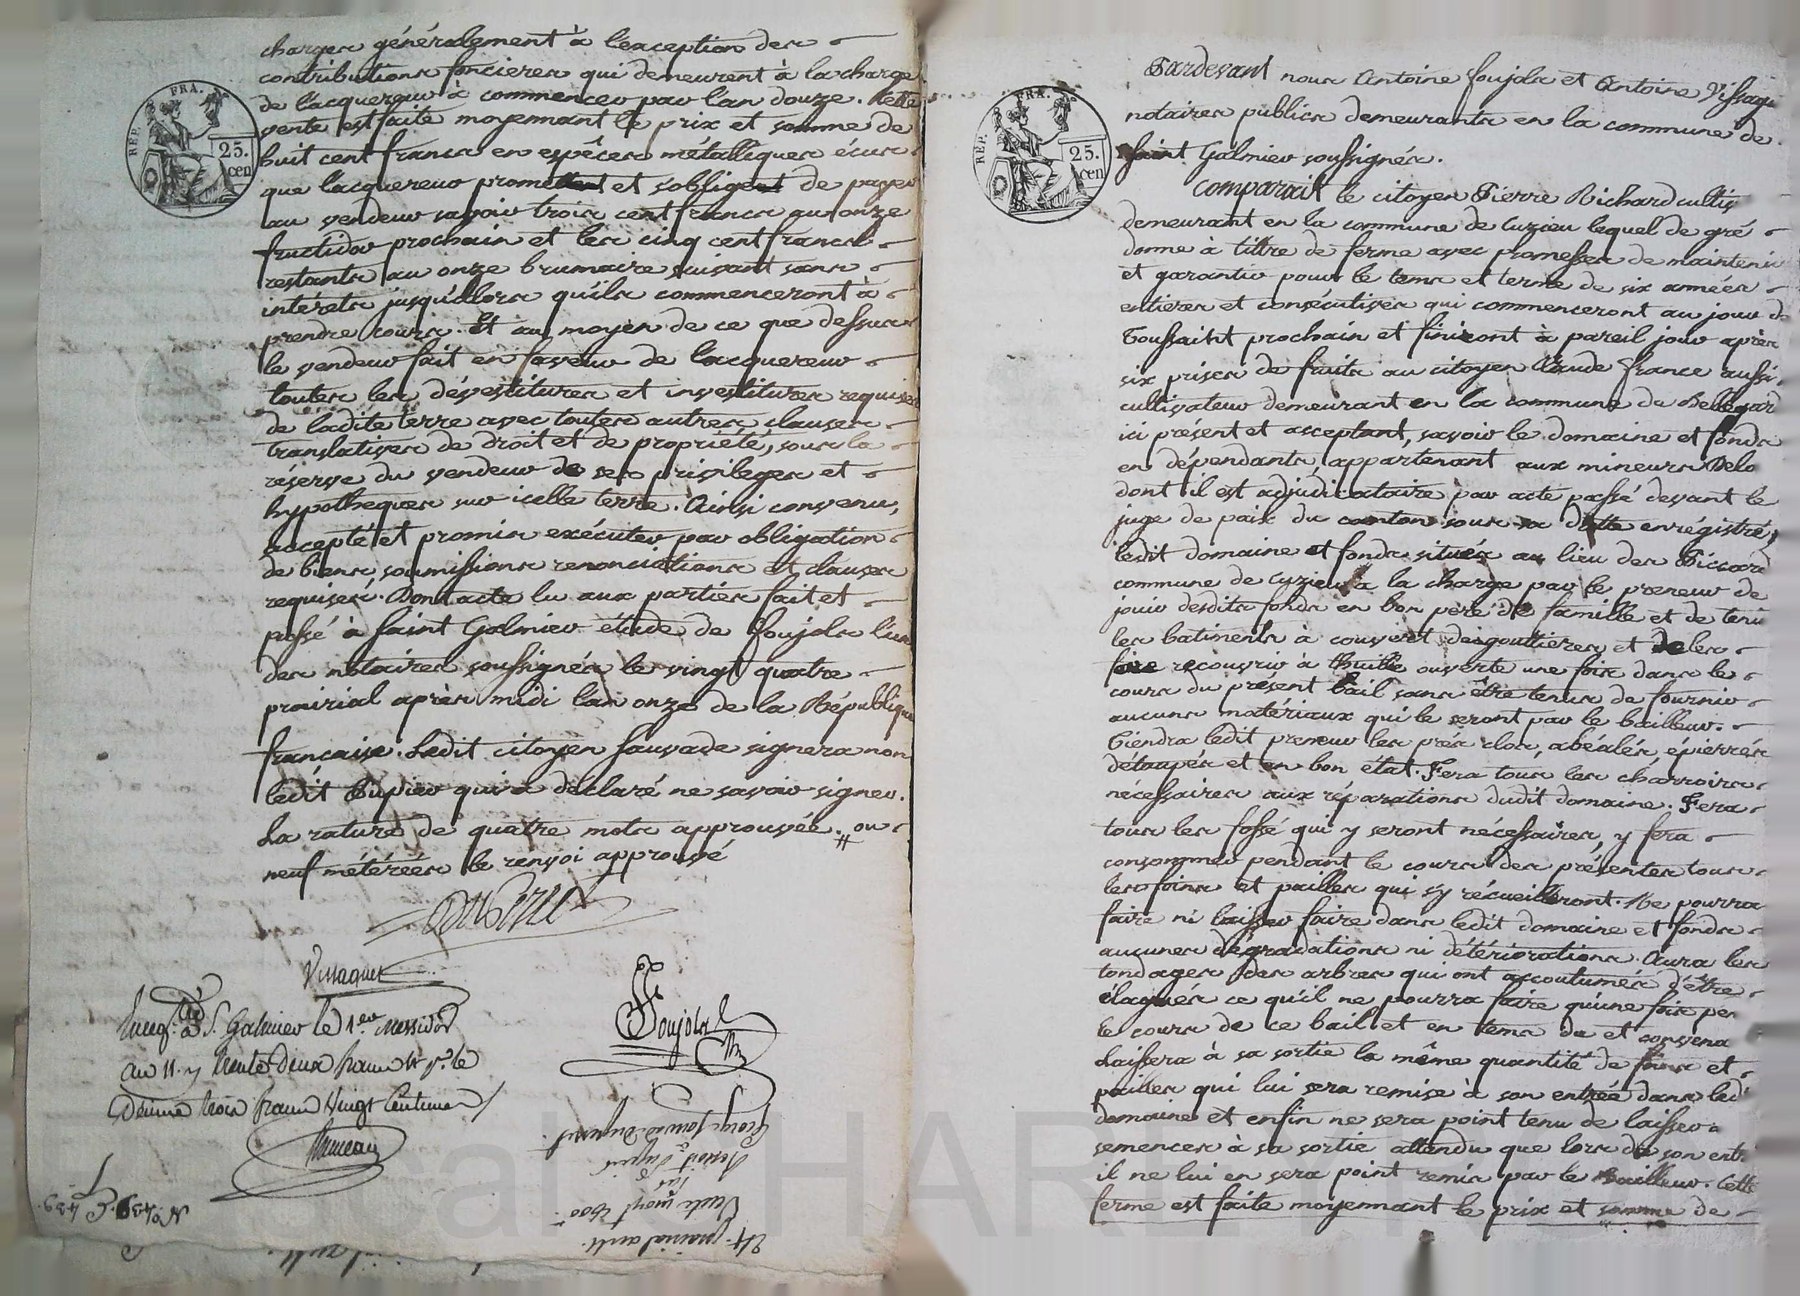 REP. FRA.
25.
cen
charges généralement à l'exception des
contributions foncieres qui demeurent à la charge
de l'acquereur à commencer par l'an douze. Cette
vente est faite moyennant le prix et somme de
huit cent francs en espêces métalliques écus
que l'acquereur promettent et s'obligent de payer
au vendeur savoir trois cent francs au onze
fructidor prochain et les cinq cent francs
restants au onze brumaire suivant sans
intérets jusqu'alors qu'ils commenceront à
prendre cours. Et au moyen de ce que dessus
le vendeur fait en faveur de l'acquereur
toutes les dévestitures et investitures requises
de ladite terre avec toutes autres clauses
translatives de droit et de propriété, sous la
réserve du vendeur de ses privileges et
hypotheques sur icelle terre. Ainsi convenu,
accepté et promis exécuter par obligation
de biens, soumissions renonciations et clauses
requises. Dont acte lu aux parties fait et
passé à Saint Galmier étude de Poujola l'un
des notaires soussignés le vingt quatre
prairial après midi l'an onze de la République
française. Ledit citoyen Sauvade signera non
ledit Tupier qui a déclaré ne savoir signer.
La rature de quatre mots approuvée. ou
neuf métérées le renvoi approuvé
Vissaguet
Poujola
Enreg. à S. Galmier le 1.er Messidor
an 11. y trente deux francs
Dixme trois francs vingt Centimes
24. prairial an 11.
Vente 800
par
à
N.o 439.
REP. FRA.
25.
cen
Pardevant nous Antoine Poujola et Antoine Vissaguet
notaires publics demeurants en la commune de
Saint Galmier soussignés.
Comparait le citoyen Pierre Richard cultiv
demeurant en la commune de Cuzieu lequel de gré
donne à tittre de ferme avec promesses de maintenir
et garantir pour le tems et terme de six années
entieres et consécutives qui commenceront au jour de
Toussaint prochain et finiront à pareil jour après
six prises de fruits au citoyen Claude France aussi
cultivateur demeurant en la commune de Bellegard
ici présent et acceptant, savoir le domaine et fonds
en dépendants, appartenant aux mineurs Delo
dont il est adjudicataire par acte passé devant le
juge de paix du canton sous sa datte enrégistré,
ledit domaine et fonds situés au lieu des Piccard
commune de Cuzieu à la charge par le preneur de
jouir desdits fonds en bon père de famille et de tenir
les batiments à couvert de gouttieres et de les
faire recouvrir à thuille ouverte une fois dans le
cours du présent bail sans être tenus de fournir
aucuns matériaux qui le seront par le bailleur.
Tiendra ledit preneur les prés clos, abéalés, épierrés
détaupés et en bon état. Fera tous les charroirs
necessaires aux réparations dudit domaine. Fera
tous les fossé qui y seront nécessaires, y fera
consommer pendant le cours des présentes tous
les foins et pailles qui s'y récueilleront. Ne pourra
faire ni laisser faire dans ledit domaine et fonds
aucunes dégradations ni détériorations. Aura les
tondages des arbres qui ont accoutumés d'être
élagués ce qu'il ne pourra faire qu'une fois pen
le cours de ce bail et en tems du et convena
Laissera à sa sortie la même quantité de foins et
pailles qui lui sera remise à son entrée dans led
domaine et enfin ne sera point tenu de laisser
semences à sa sortie attendu que lors de son ent
il ne lui en sera point remis par le Bailleur. Cette
ferme est faite moyennant le prix et somme de